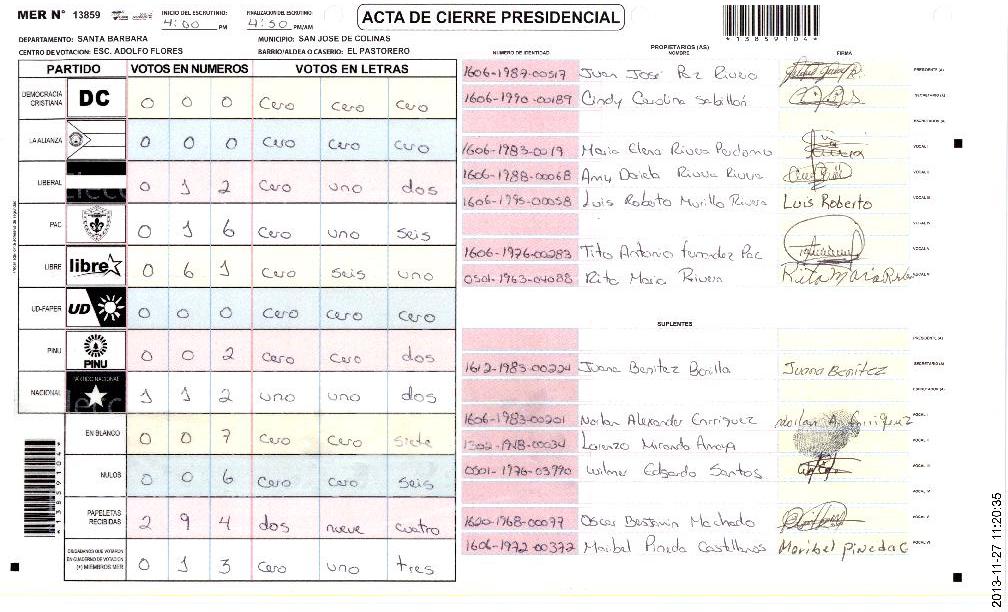 MER Nº 13859 INICIO DEL ESCRUTINIO: 4:00 PM FINALIZACION DEL ESCRUTINIO: 4:50 PM/AM ACTA DE CIERRE PRESIDENCIAL
*13859104*
DEPARTAMENTO: SANTA BARBARA MUNICIPIO: SAN JOSE DE COLINAS
CENTRO DE VOTACION: ESC. ADOLFO FLORES BARRIO/ALDEA O CASERIO: EL PASTORERO
PARTIDO VOTOS EN NUMEROS VOTOS EN LETRAS
DEMOCRACIA CRISTIANA DC 0 0 0 Cero Cero Cero
LA ALIANZA 0 0 0 Cero Cero Cero
LIBERAL 0 1 2 Cero uno dos
PAC 0 1 6 Cero uno seis
LIBRE libre 0 6 1 Cero seis uno
UD-FAPER UD 0 0 0 Cero Cero Cero
PINU PINU 0 0 2 Cero Cero dos
NACIONAL PARTIDO NACIONAL 1 1 2 uno uno dos
EN BLANCO 0 0 7 Cero Cero siete
NULOS 0 0 6 Cero Cero seis
PAPELETAS RECIBIDAS 2 9 4 dos nueve cuatro
CIUDADANOS QUE VOTARON EN CUADERNO DE VOTACION (+) MIEMBROS MER 0 1 3 Cero uno tres
*13859104*
PROPIETARIOS (AS)
NUMERO DE IDENTIDAD NOMBRE FIRMA
1606-1987-00517 Juan José Paz Rivera PRESIDENTE (A)
1606-1990-00189 Cindy Carolina Sabillón SECRETARIO (A)
ESCRUTADOR (A)
1606-1983-0019 Maria Elena Rivera Perdomo VOCAL I
1606-1988-00068 Amy Rivera Rivera VOCAL II
1606-1995-00058 Luis Roberto Murillo Rivera Luis Roberto VOCAL III
VOCAL IV
1606-1976-00283 Tito Antonio Fernandez Paz VOCAL V
0501-1963-04088 Rita Maria Rivera Rita Maria VOCAL VI
SUPLENTES
PRESIDENTE (A)
1612-1983-00224 Juana Benitez Bonilla Juana Benitez SECRETARIO (A)
ESCRUTADOR (A)
1606-1983-00201 Norlan Alexander Enrriquez Norlan A. Enrriquez VOCAL I
1302-1948-00034 Lorenzo Miranda Amaya VOCAL II
0501-1976-03990 Wilmer Edgardo Santos VOCAL III
VOCAL IV
1620-1968-00077 Oscar Machado VOCAL V
1606-1972-00372 Maribel Pineda Castellanos Maribel Pineda C VOCAL VI
2013-11-27 11:20:35